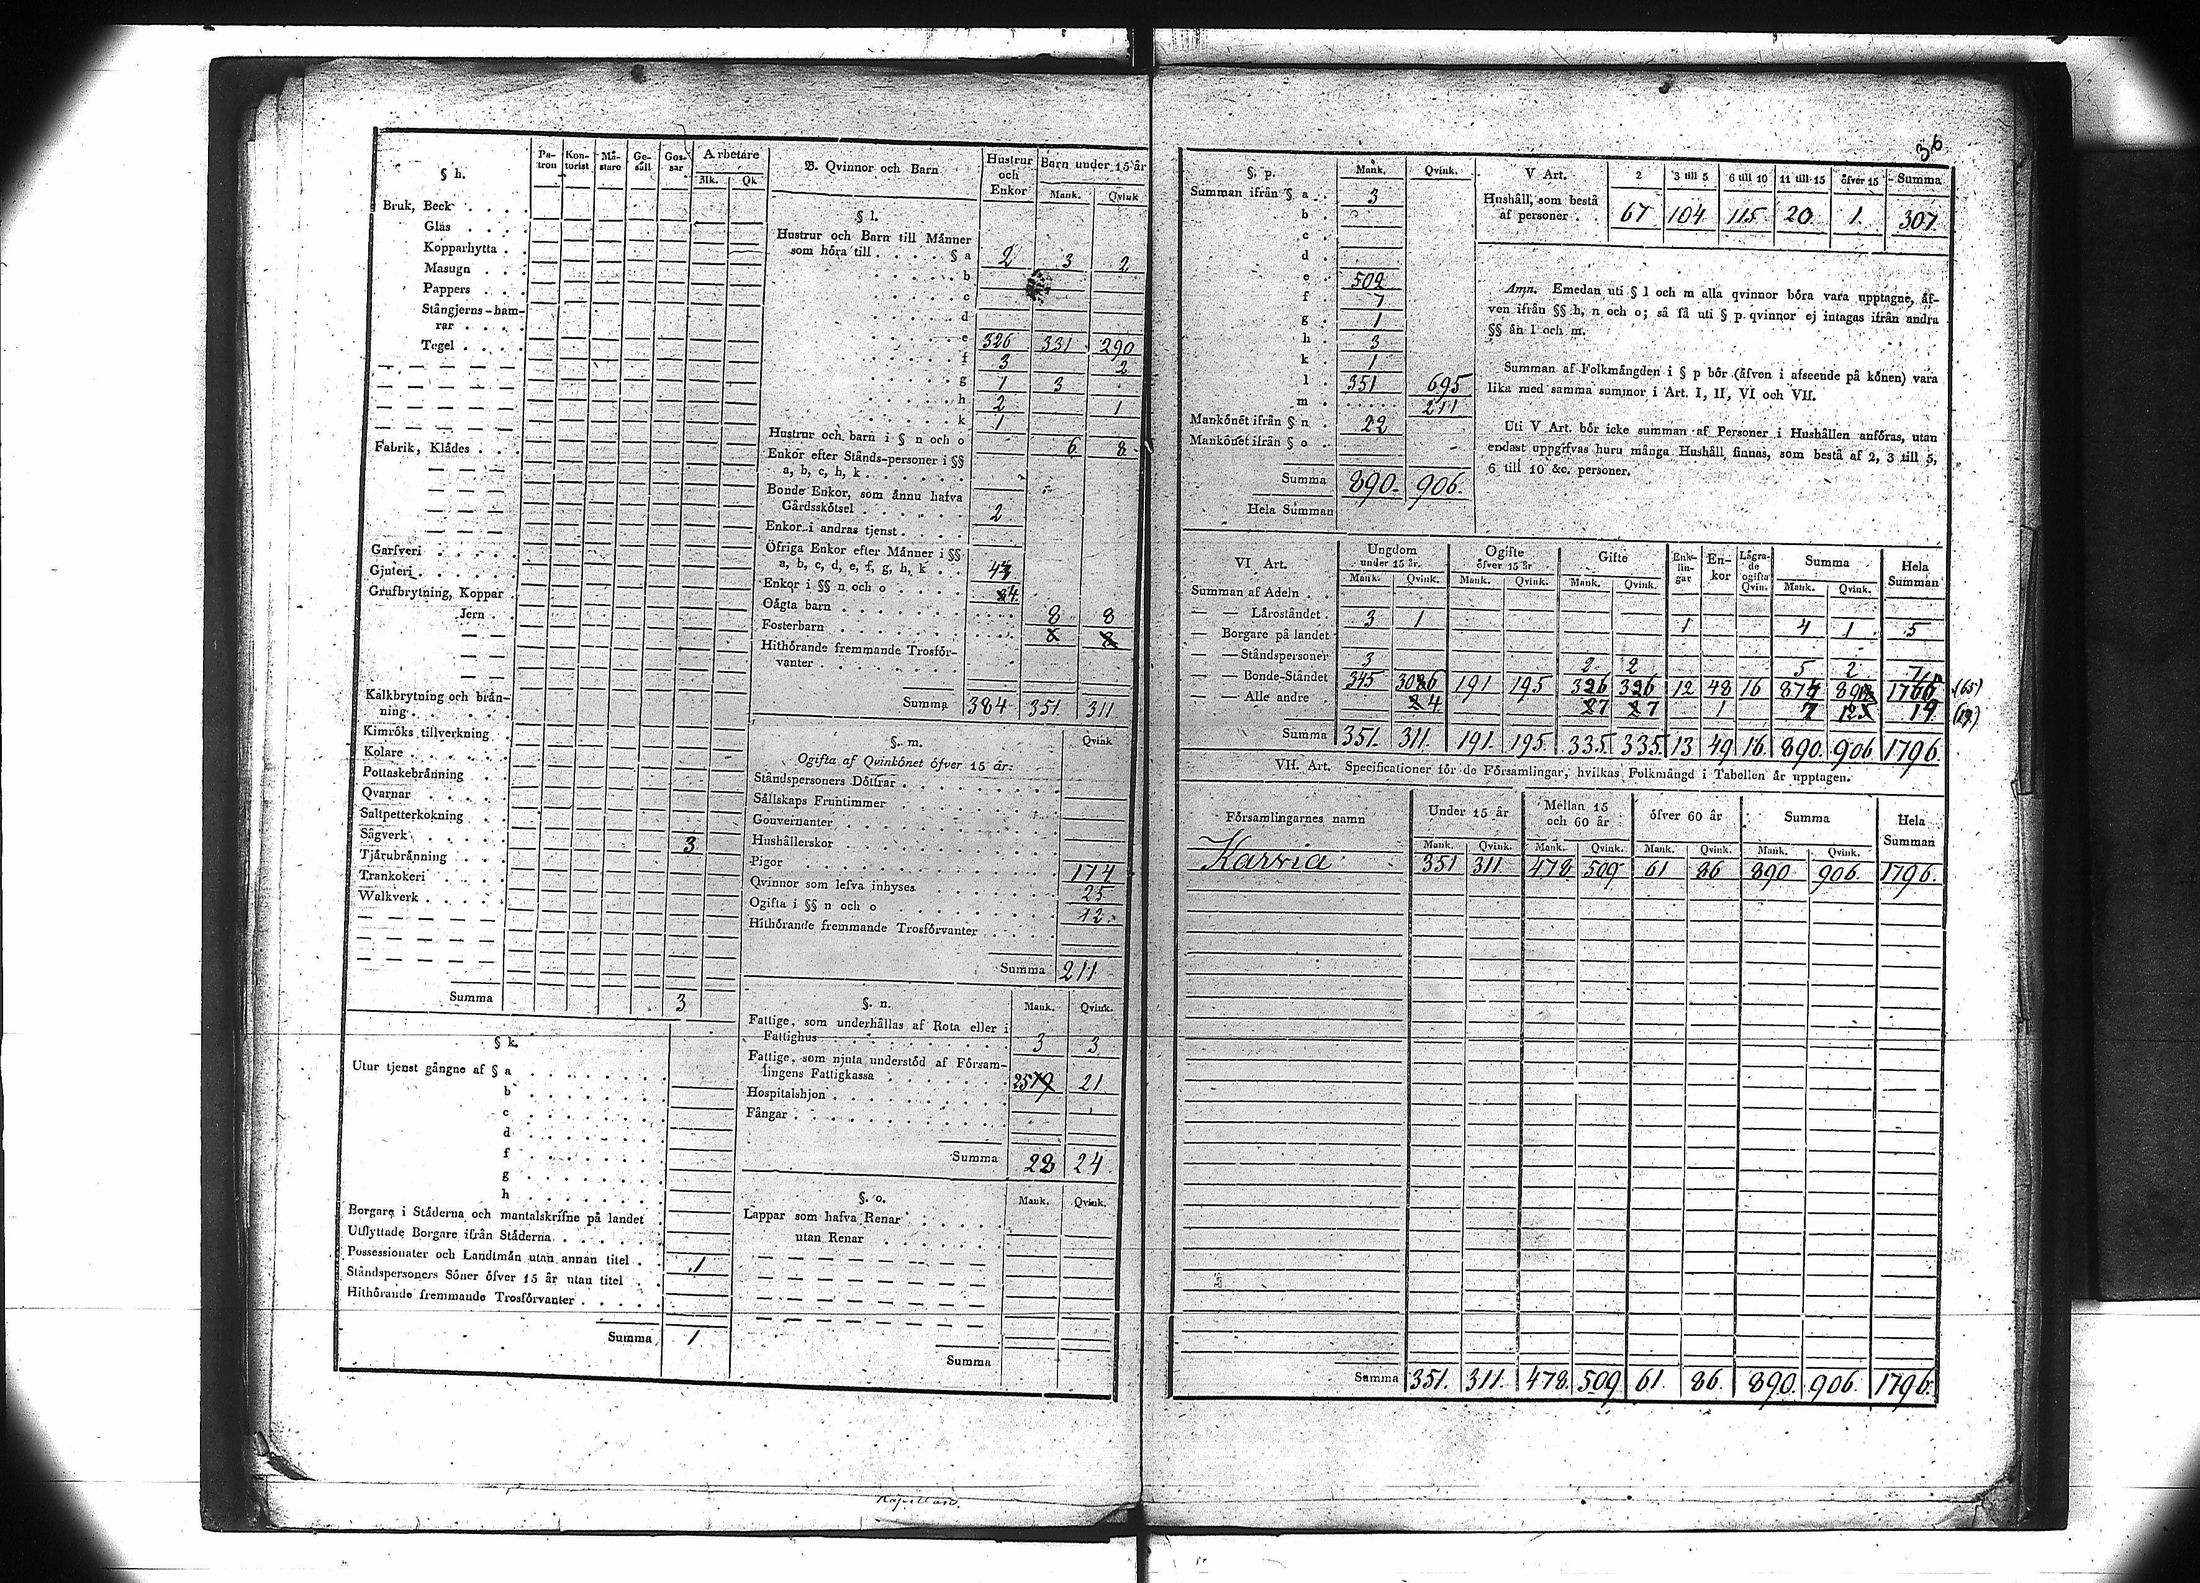 36
§ h.
Pa-tron Kon-torist Mä-stare Ge-säll Gos-sar Arbetare Mk. Qk
Bruk, Beck
Glas
Kopparhytta
Masugn
Pappers
Stångjerns-ham-
rar
Tegel
Fabrik, Klädes
Garfveri
Gjuteri
Grufbrytning, Koppar
Jern
Kalkbrytning och brän-
ning
Kimröks tillverkning
Kolare
Pottaskebränning
Qvarnar
Saltpetterkokning
Sågverk 3
Tjärubränning
Trankokeri
Walkverk
Summa 3
§ k.
Utur tjenst gångne af § a
b
c
d
f
g
h
Borgare i Städerna och mantalskrifne på landet
Utflyttade Borgare ifrån Städerna
Possessionater och Landtmän utan annan titel 1
Ståndspersoners Söner öfver 15 år utan titel
Hithörande fremmande Trosförvanter
Summa 1
B. Qvinnor och Barn Hustrur och Enkor Barn under 15 år Mank. Qvink
§ l.
Hustrur och Barn till Männer
som höra till § a 2 3 2
b
c
d
e 326 331 290
f 3 2
g 1 3
h 2 1
k 1
Hustrur och barn i § n och o 6 8
Enkor efter Stånds-personer i §§
a, b, c, h, k
Bonde Enkor, som ännu hafva
Gårdsskötsel 2
Enkor i andras tjenst
Öfriga Enkor efter Männer i §§
a, b, c, d, e, f, g, h, k
Enkor i §§ n och o 4
Oägta barn 8 8
Fosterbarn
Hithörande fremmande Trosför-
vanter
Summa 384 351 311
§. m. Qvink
Ogifta af Qvinkönet öfver 15 år:
Ståndspersoners Döttrar
Sällskaps Fruntimmer
Gouvernanter
Hushållerskor
Pigor 174
Qvinnor som lefva inhyses 25
Ogifta i §§ n och o 12
Hithörande fremmande Trosförvanter
Summa 211
§. n. Mank. Qvink.
Fattige, som underhållas af Rota eller i
Fattighus 3 3
Fattige, som njuta understöd af Försam-
lingens Fattigkassa 21
Hospitalshjon
Fångar
Summa 22 24
§. o. Mank. Qvink.
Lappar som hafva Renar
utan Renar
Summa
§. p. Mank. Qvink.
Summan ifrån § a 3
b
c
d
e 502
f 7
g 1
h 3
k 1
l 351 695
m 211
Mankönet ifrån § n 22
Mankönet ifrån § o
Summa 890. 906.
Hela Summan
V Art. 2 3 till 5 6 till 10 11 till 15 öfver 15 Summa
Hushåll, som bestå
af personer 67 104 115 20 1. 307.
Anm. Emedan uti § l och m alla qvinnor böra vara upptagne, äf-
ven ifrån §§ h, n och o; så få uti § p qvinnor ej intagas ifrån andra
§§ än l och m.
Summan af Folkmängden i § p bör (äfven i afseende på könen) vara
lika med samma summor i Art. I, II, VI och VII.
Uti V Art. bör icke summan af Personer i Hushållen anföras, utan
endast uppgifvas huru många Hushåll finnas, som bestå af 2, 3 till 5,
6 till 10 &c. personer.
VI Art. Ungdom under 15 år. Ogifte öfver 15 år Gifte Enk-lin-gar En-kor Lägra-de ogifta Qvin. Summa Hela Summan
Mank. Qvink. Mank. Qvink. Mank. Qvink. Mank. Qvink.
Summan af Adeln
— — Läroståndet 3 1 1 4 1 5
— Borgare på landet
— — Ståndspersoner 3 2 2 5 2 7
— — Bonde-Ståndet 345 191 195 326 326 12 48 16 (65)
— — Alle andre 4 7 7 1 19
Summa 351. 311. 191. 195. 335. 335. 13 49 16. 890. 906 1796.
VII. Art. Specificationer för de Församlingar, hvilkas Folkmängd i Tabellen är upptagen.
Församlingarnes namn Under 15 år Mellan 15 och 60 år öfver 60 år Summa Hela Summan
Mank. Qvink. Mank. Qvink. Mank. Qvink. Mank. Qvink.
Karvia 351 311. 478. 509 61 86 890 906. 1796.
Summa 351. 311. 478. 509 61. 86. 890. 906. 1796.